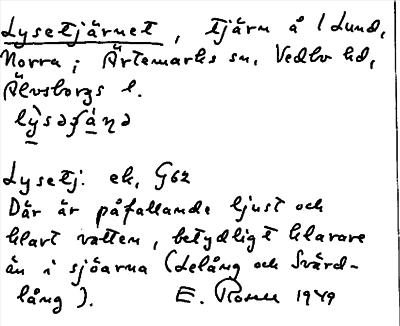 Lysetjärnet, tjärn å 1 Lund,
Norra; Ärtemarks sn, Vedbo hd,
Älvsborgs l.
Lysetj: ek, G62
Där är påfallande ljust och
klart vatten, betydligt klarare
än i sjöarna (Lelång och Svärd-
lång). E. Rosell 1949